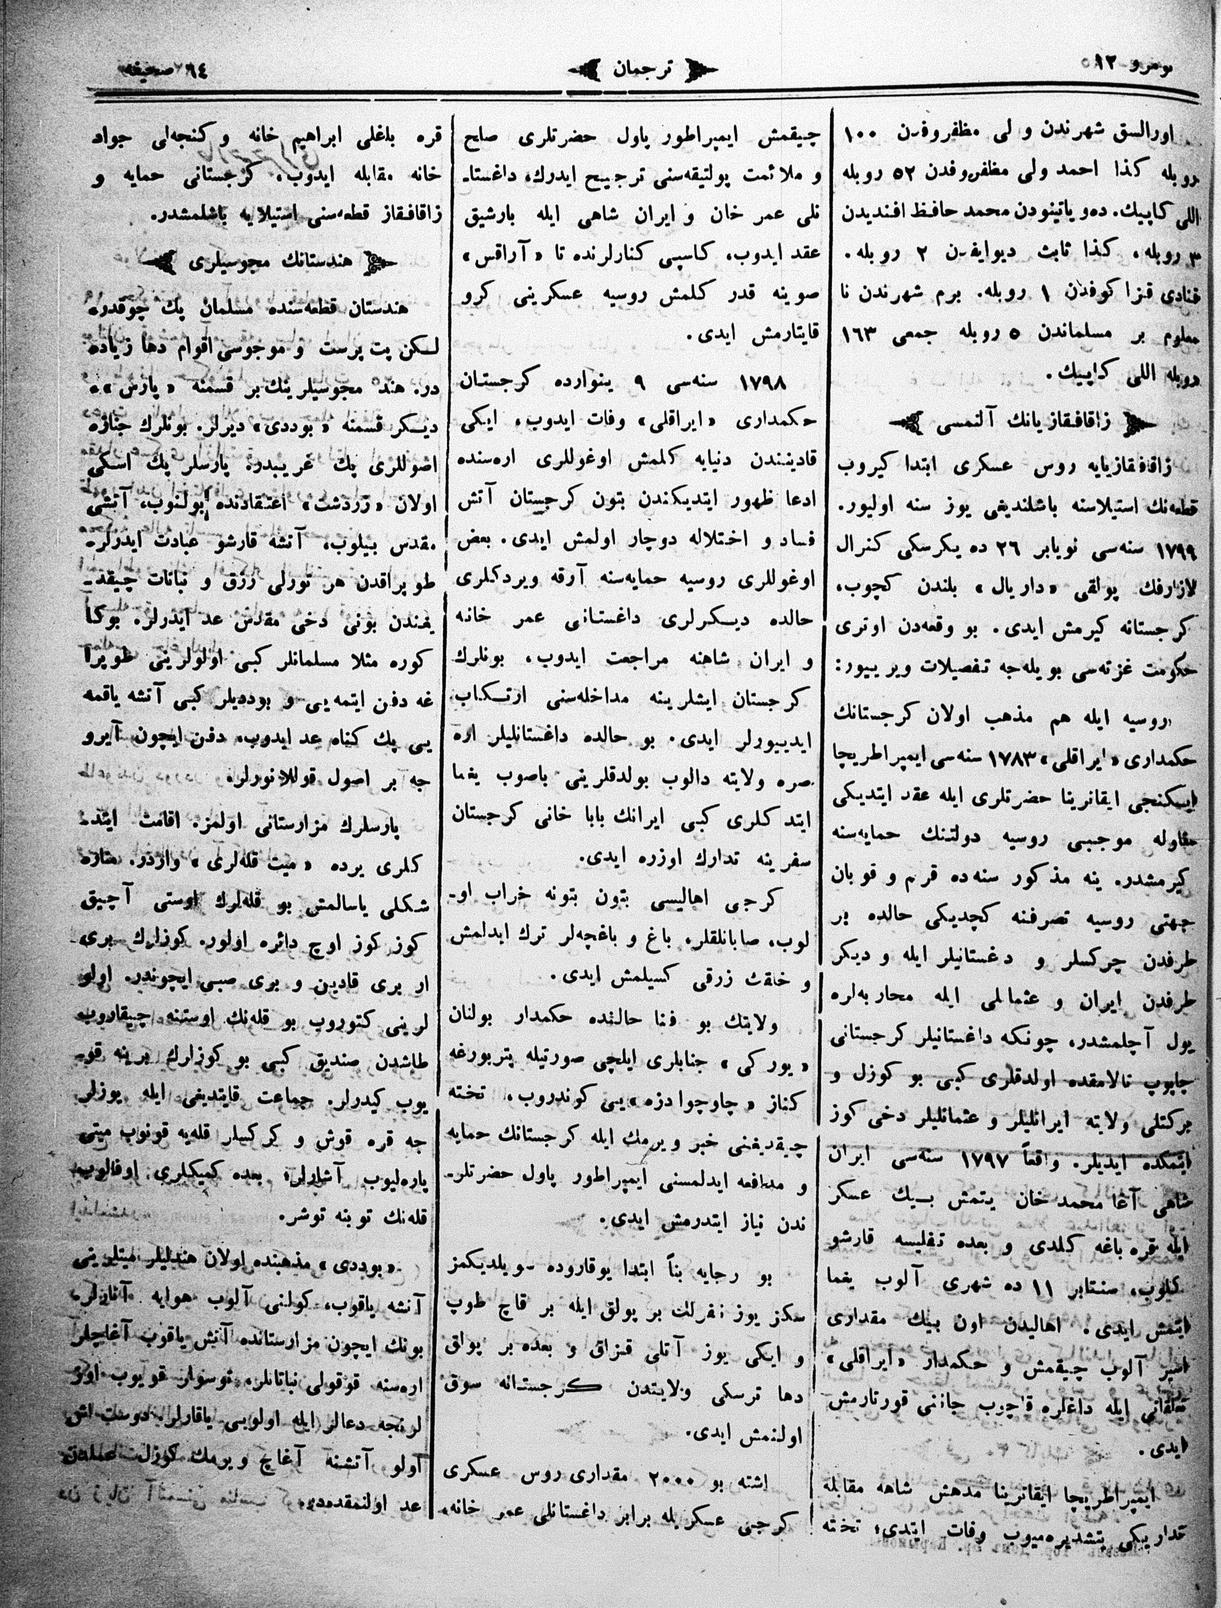 نومرو ۱۲
ترجمان
صحیفه ٦٤
اورالسق شهرندن و لی مظفروفدن ۱۰۰
روبله کذا احمد ولی مظفروفدن ۵۲ روبله
اللی کاپیك. دەویاتینودن محمد حافظ افندیدن
۳ روبله، کذا ثابت دیوایفدن ۲ روبله.
قنادی قزا کوفدن ۱ روبله. برم شهرندن نا
معلوم بر مسلماندن ۵ روبله جمعی ۱٦۳
روبله اللی کاپیك.
زاقافقازیانك آلنمسی
زاقافقازیایه روس عسکری ابتدا کیروب
قطعه‌نك استیلاسنه باشلندیغی یوز سنه اولیور.
۱۷۹۹ سنه‌سی نویابر ۲٦ ده یکرسکی کنرال
لازارفك پولقی «داریال» بلندن کچوب،
کرجستانه کیرمش ایدی. بو وقعه‌دن اوتری
حکومت غزته‌سی بویله‌جه تفصیلات ویرییور:
روسیه ایله هم مذهب اولان کرجستانك
حکمداری «ایراقلی» ۱۷۸۳ سنه‌سی ایمپراطریچا
ایکنجی ایقاترینا حضرتلری ایله عقد ایتدیکی
مقاوله موجبی روسیه دولتنك حمایه‌سنه
کیرمشدر. ینه مذکور سنه‌ده قرم و قوبان
جهتی روسیه تصرفنه کچدیکی حالده بر
طرفدن چرکسلر و دغستانیلر ایله و دیکر
طرفدن ایران و عثمانلی ایله محاربه‌لره
یول آچلمشدر، چونکه داغستانیلر کرجستانی
چاپوپ تالامقده اولدقلری کبی بو کوزل و
برکتلی ولایته ایرانلیلر و عثمانلیلر دخی کوز
ایتمکده ایدیلر. واقعاً ۱۷۹۷ سنه‌سی ایران
شاهی آغا محمد خان یتمش بیك عسکر
ایله قره باغه کلدی و بعده تفلیسه قارشو
کیلوب، سنتابر ۱۱ ده شهری آلوب یغما
ایتمش ایدی. اهالیدن اون بیك مقداری
اسیر آلوب چیقمش و حکمدار «ایراقلی»
متعلقاتی ایله داغلره قاچوب جاننی قورتارمش
ایدی.
ایمپراطریچا ایقاترینا مدهش شاهه مقابله
تدارییکی یتشدیره‌میوب وفات ایتدی؛ تخته
چیقمش ایمپراطور پاول حضرتلری صلح
و ملائمت پولتیقه‌سنی ترجیح ایدرك، داغستا-
نلی عمر خان و ایران شاهی ایله بارشیق
عقد ایدوب، کاسپی کنارلرنده تا «آراقس»
صوینه قدر کلمش روسیه عسکرینی کرو
قایتارمش ایدی.
۱۷۹۸ سنه‌سی ۹ ینوارده کرجستان
حکمداری «ایراقلی» وفات ایدوب، ایکی
قادینندن دنیایه کلمش اوغوللری اره‌سنده
ادعا ظهور ایتدیکندن بتون کرجستان آتش
فساد و اختلاله دوچار اولمش ایدی. بعض
اوغوللری روسیه حمایه‌سنه آرقه ویردکلری
حالده دیکرلری داغستانی عمر خانه
و ایران شاهنه مراجعت ایدوب، بونلرك
کرجستان ایشلرینه مداخله‌سنی ارتکاب
ایدییورلر ایدی. بو حالده داغستانلیلر اره
صره ولایته دالوب بولدقلرینی باصوب یغما
ایتدکلری کبی ایرانك بابا خانی کرجستان
سفرینه تدارك اوزره ایدی.
کرجی اهالیسی بتون بتونه خراب او-
لوب، صابانلقلر، باغ و باغچه‌لر ترك ایدلمش
و خلقك زرقی کسیلمش ایدی.
ولایتك بو فنا حالنده حکمدار بولنان
«یورکی» جنابلری ایلچی صورتیله پتربورغه
کناز «چاوچوادزه»یی کوندروب، تخته
چیقدیغنی خبر ویرمك ایله کرجستانك حمایه
و مدافعه ایدلمسنی ایمپراطور پاول حضرتلر-
ندن نیاز ایتدرمش ایدی.
بو رجایه بناً ابتدا یوقاروده سویلدیکمز
سکز یوز نفرلك بر پولق ایله بر قاچ طوپ
و ایکی یوز آتلی قزاق و بعده بر پولق
دها ترسکی ولایتدن کرجستانه سوق
اولنمش ایدی.
اشته بو ۲۰۰۰ مقداری روس عسکری
کرجی عسکریله برابر داغستانلی عمر خانه،
قره باغلی ابراهیم خانه و کنجه‌لی جواد
خانه مقابله ایدوب، کرجستانی حمایه و
زاقافقاز قطعه‌سنی استیلایه باشلمشدر.
هندستانك مجوسیلری
هندستان قطعه‌سنده مسلمان پك چوقدره
لکن پت پرست و موجوسی اقوام دها زیاده
در. هند مجوسیلرینك بر قسمنه «پارس»،
دیکر قسمنه «بوددی» دیرلر. بونلرك جنازه
اصوللری پك غریبدر. پارسلر پك اسکی
اولان «زردشت» اعتقادنده بولنوب، آتشی
مقدس بیلوب، آتشه قارشو عبادت ایدرلر.
طوپراقدن هر تورلی رزق و نباتات چیقد-
یغندن بونی دخی مقدس عد ایدرلر. بوکا
کوره مثلا مسلمانلر کبی اولولرینی طوپرا
غه دفن ایتمه‌یی و بوددیلر کبی آتشه یاقمه
یی پك کناه عد ایدوب، دفن ایچون آیرو
جه بر اصول قوللانورلر.
پارسلرك مزارستانی اولمز. اقامت ایتد-
کلری یرده «میت قله‌لری» واردر. مناره
شکلی یاسالمش بو قله‌لرك اوستی آچیق
کوز کوز اوچ دائره اولور. کوزلرك بری
ار بری قادین و بری صبی ایچوندر. اولو
لرینی کتوروپ بو قله‌نك اوستنه چیقاروب
طاشدن صندیق کبی بو کوزلرك برینه قو-
یوب کیدرلر. جماعت قایتدیغی ایله یوزلر
جه قره قوش و کرکسلر قله‌یه قونوپ میتی
پاره‌لیوب آشارلر؛ بعده کمیکلری اوفالوب
قله‌نك توبنه توشر.
«بوددی» مذهبنده اولان هندلیلر میتلرینی
آتشه یاقوب، کولنی آلوب هوایه آتارلر.
بونك ایچون مزارستانده آتش یاقوب آغاچلر
اره‌سنه قوقولی نباتاتلر، توسولر قویوب اولو
لرنجه دعالر ایله اولویی یاقارلر. دوست اش
اولو آتشنه آغاچ ویرمك کوزل عملدن
عد اولنمقده‌در.